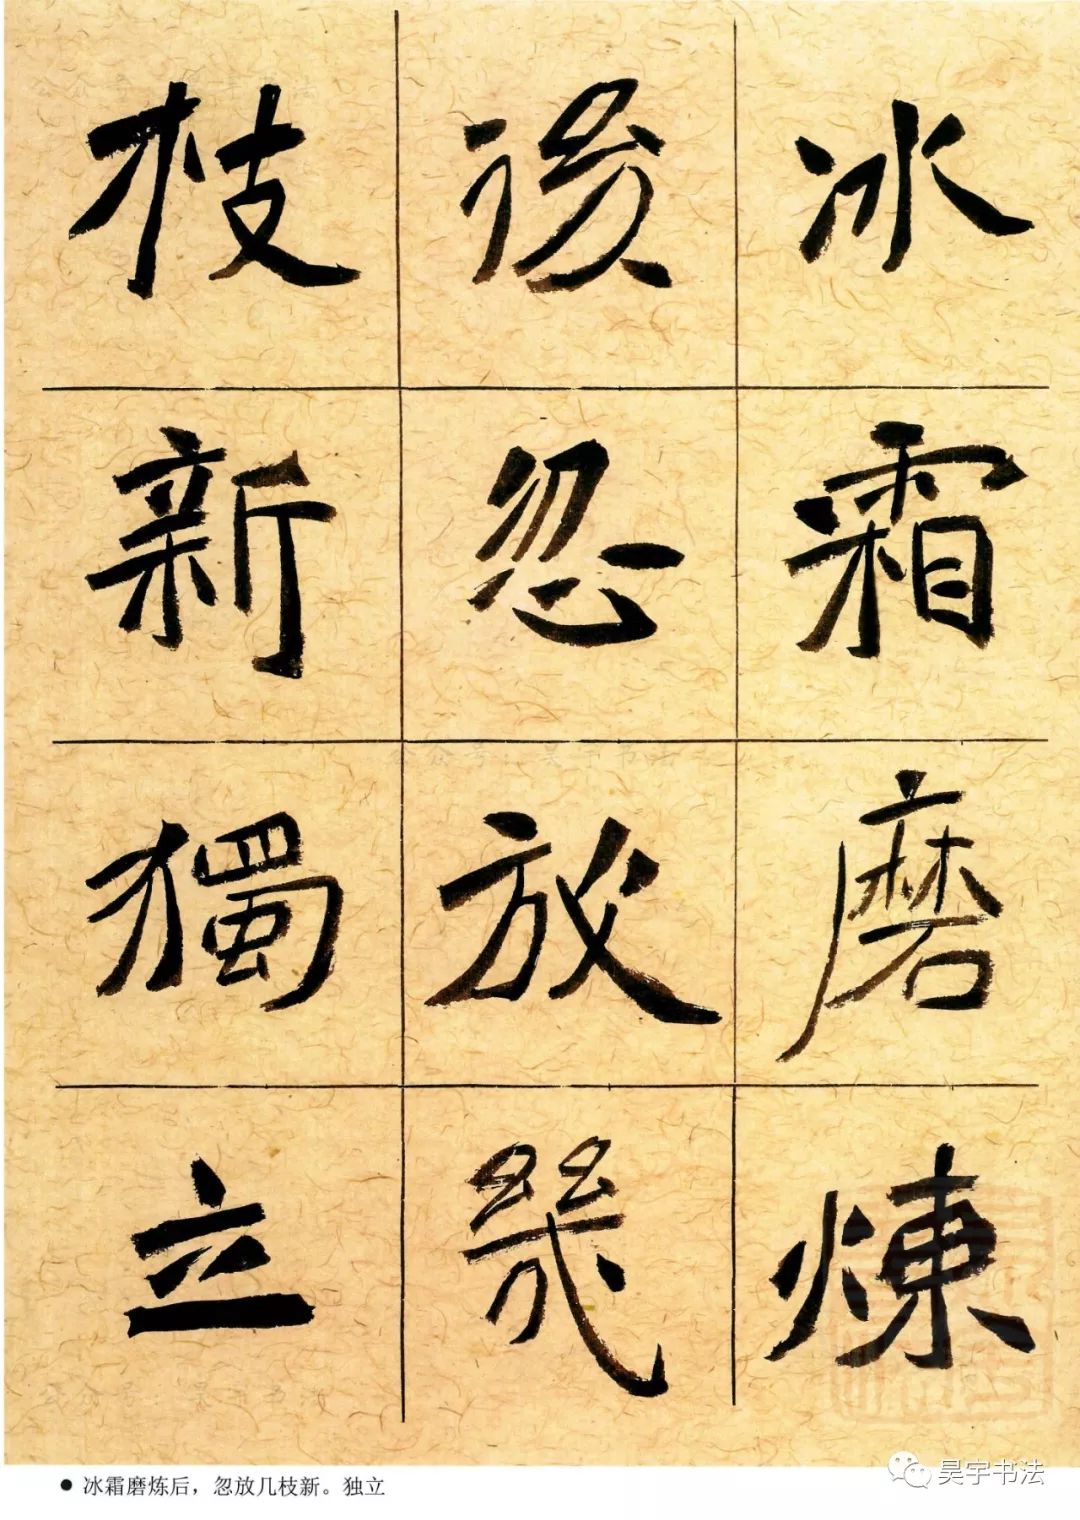 冰霜磨煉
後忽放幾
枝新獨立
● 冰霜磨炼后，忽放几枝新。独立
昊宇书法